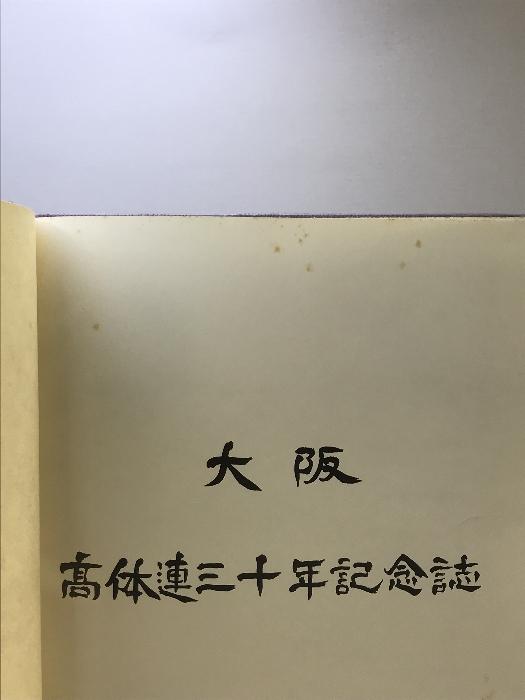 大阪
髙体連三十年記念誌